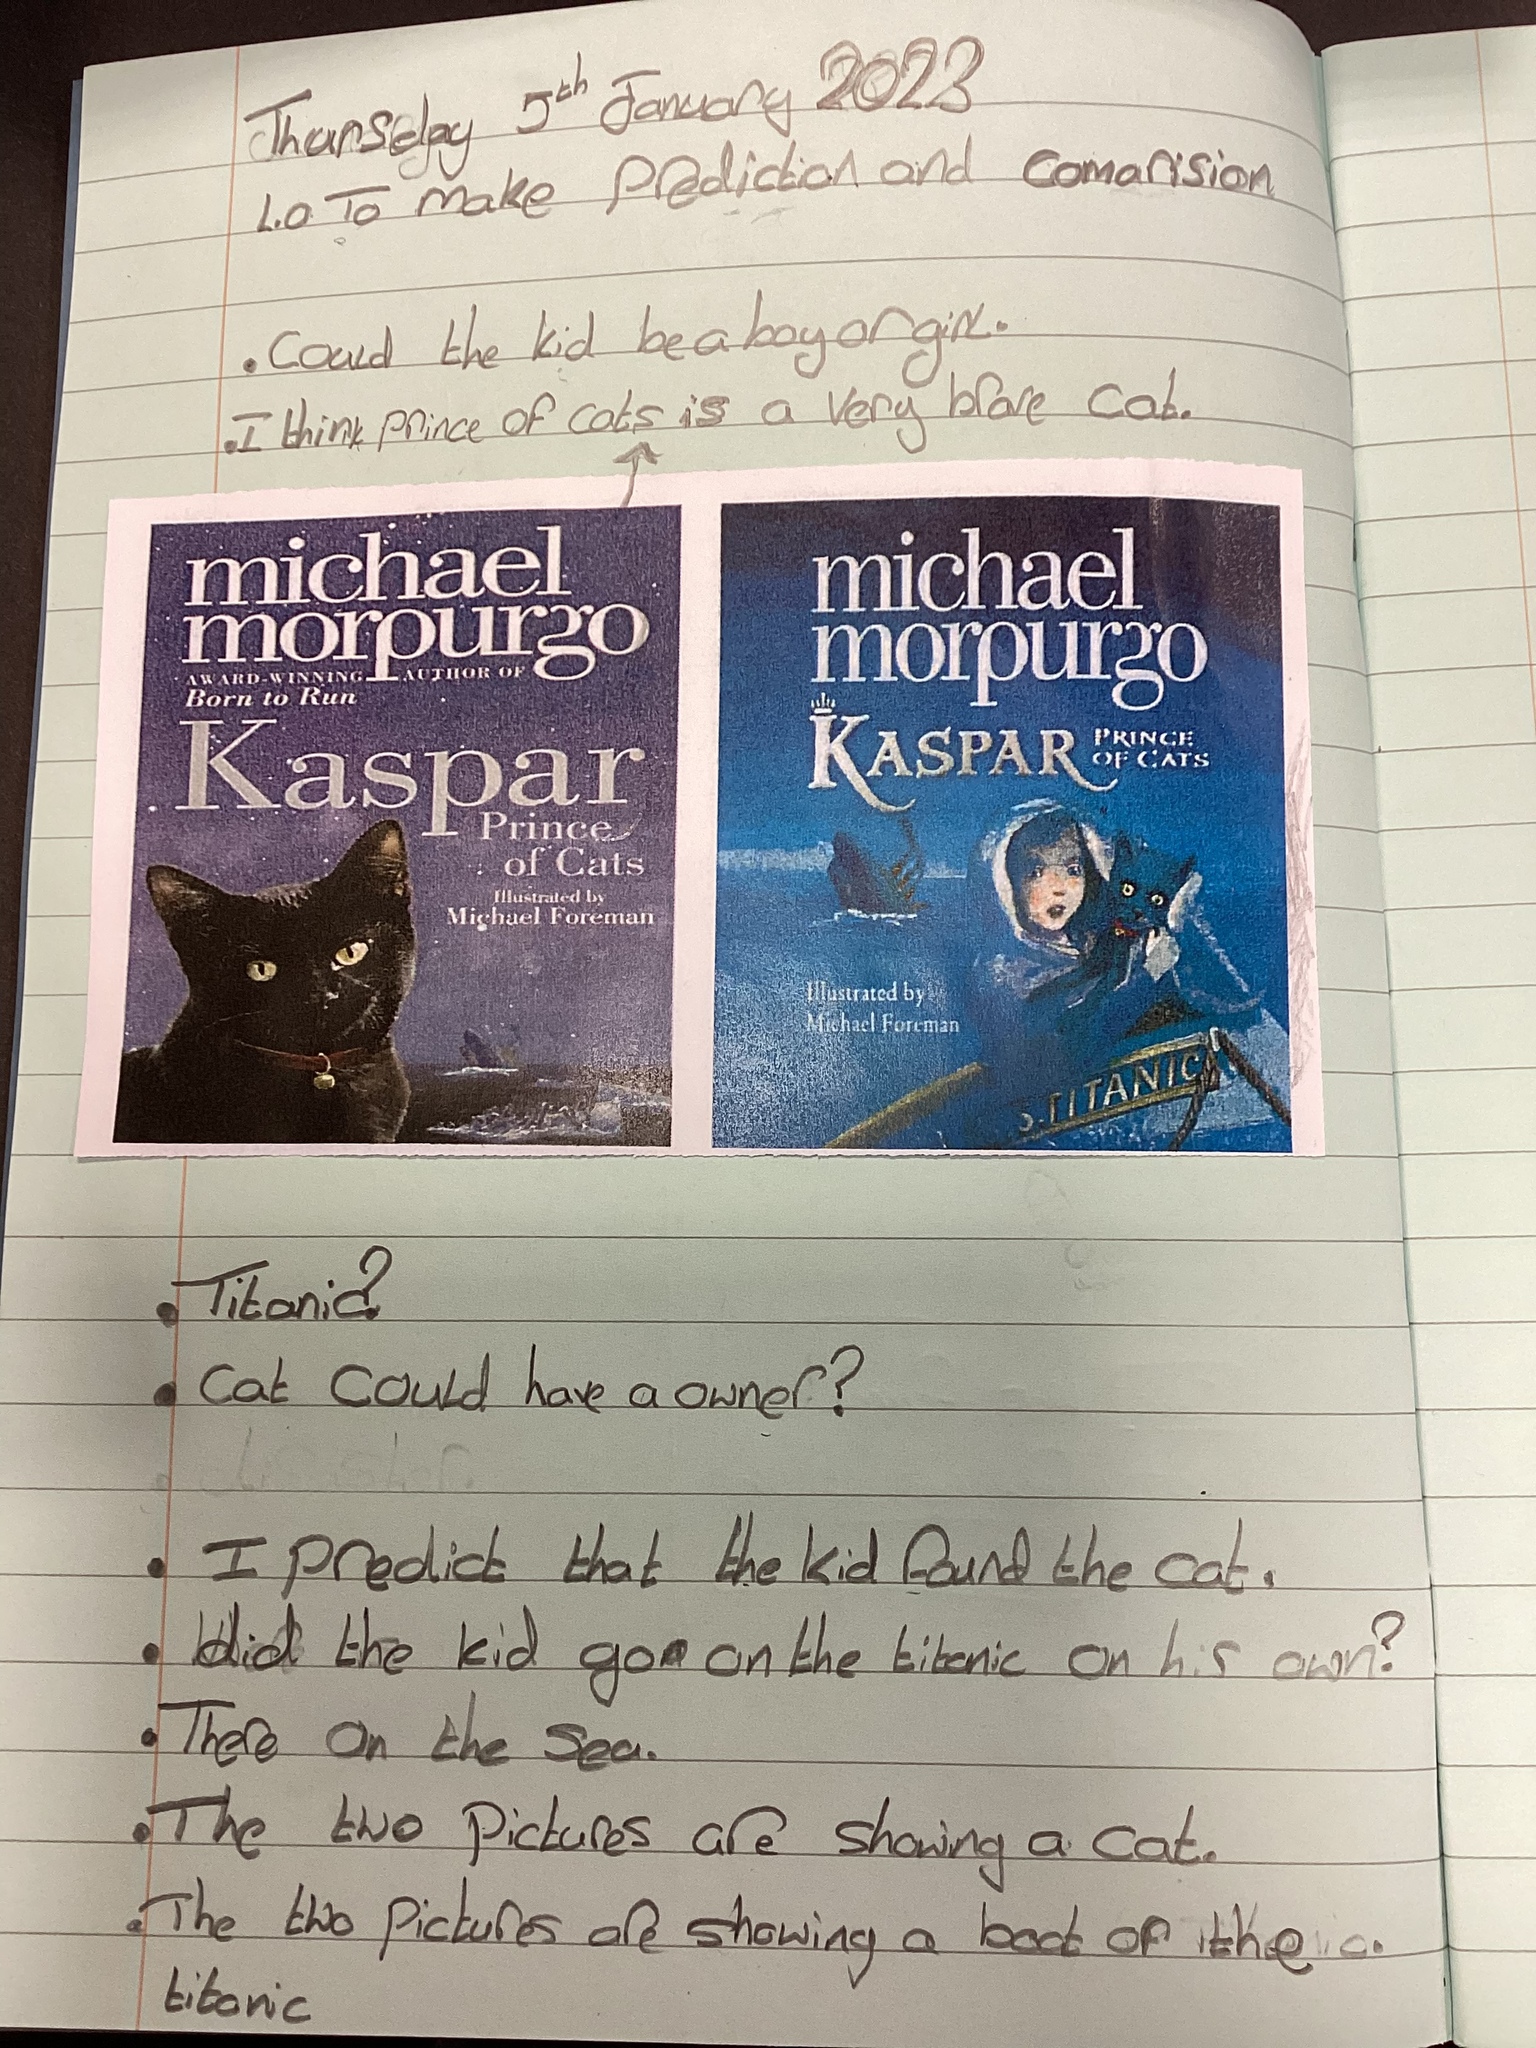 Thursday 5th January 2023
L.O To make prediction and Comarision
• Could the kid be a boy or girl.
• I think prince of cats is a very brave cat.
michael
morpurgo
AWARD-WINNING AUTHOR OF
Born to Run
Kaspar
Prince
of Cats
Illustrated by
Michael Foreman
michael
morpurgo
KASPAR PRINCE
OF CATS
Illustrated by
Michael Foreman
S. TITANIC
• Titanic?
• Cat could have a owner?
• I predict that the kid found the cat.
• did the kid go on the titanic on his own?
• There on the sea.
• The two pictures are showing a cat.
• The two pictures are showing a boat of the
titanic